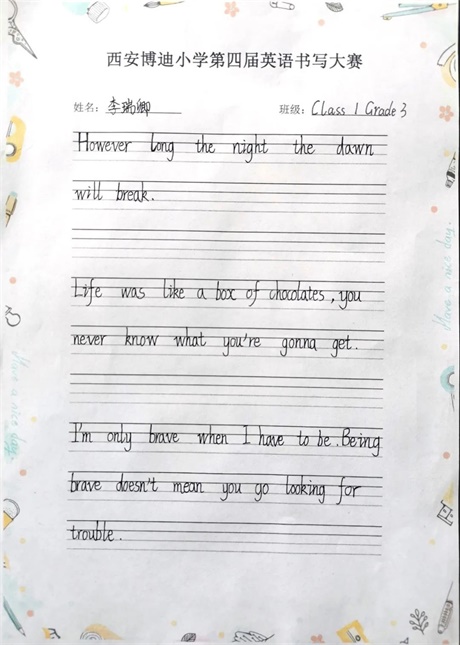 西安博迪小学第四届英语书写大赛
姓名：李瑞卿 班级：Class 1 Grade 3
However long the night the dawn
will break.
Life was like a box of chocolates, you
never know what you're gonna get.
I'm only brave when I have to be. Being
brave doesn't mean you go looking for
trouble.
Have a nice day.